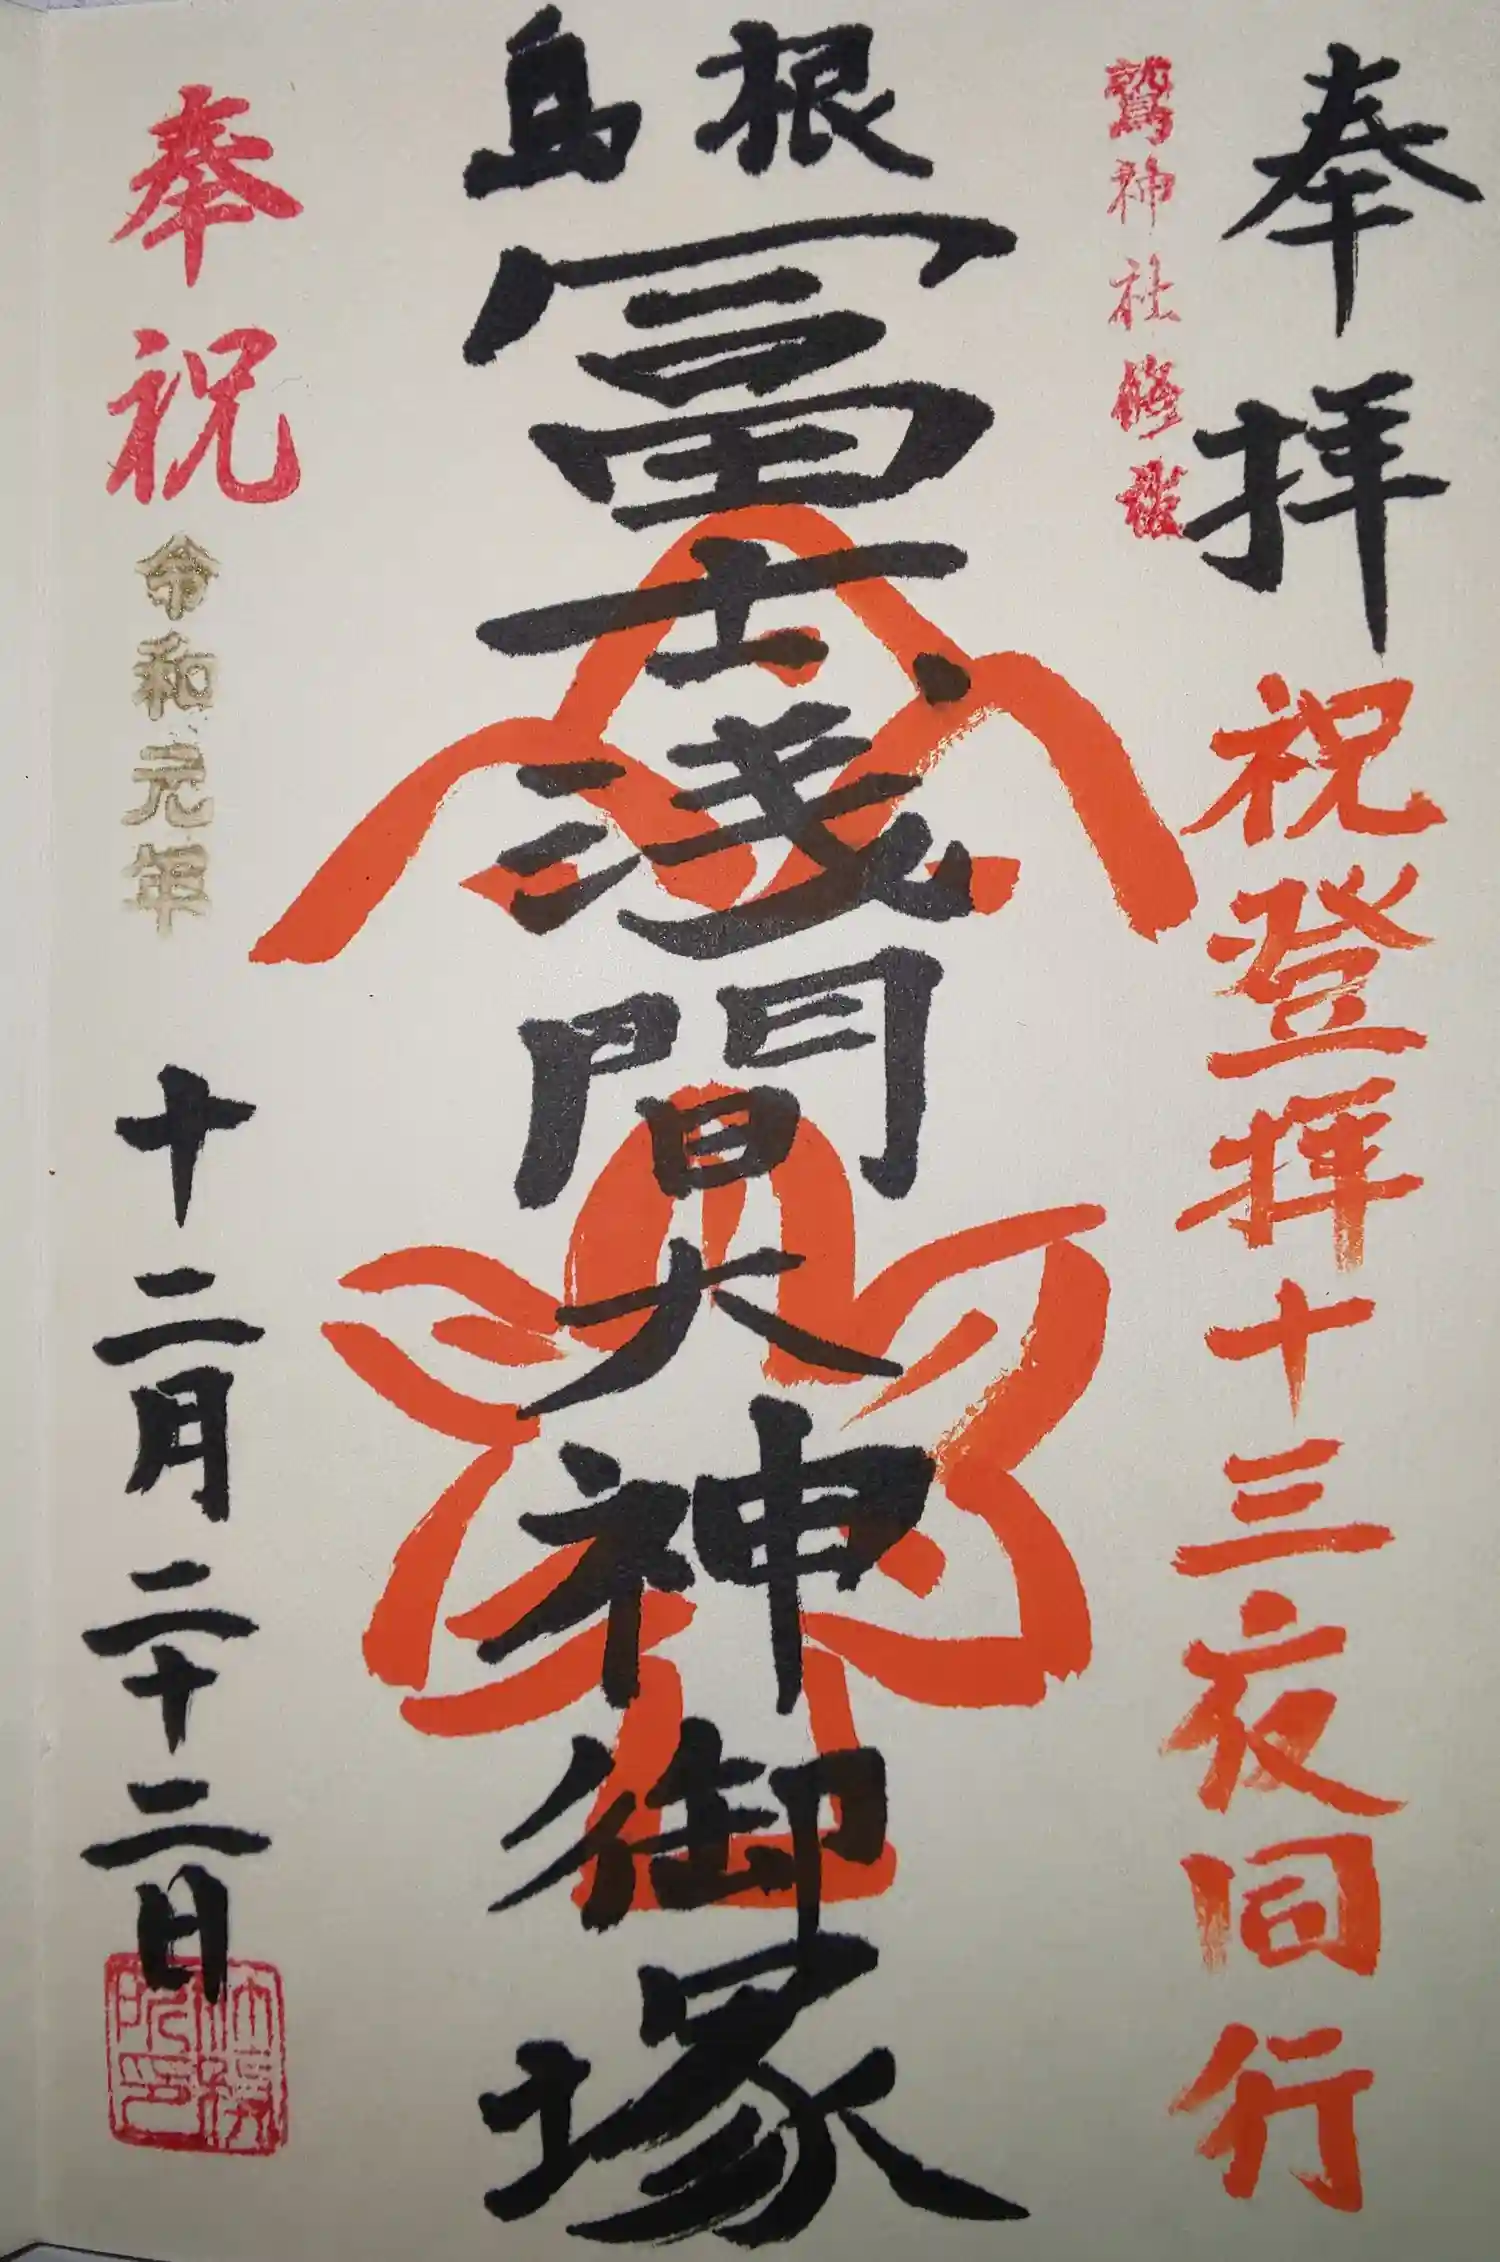 奉拝
祝登拝十三夜同行
鷲神社修
根島
冨士浅間大神御塚
奉祝
令和元年
十二月二十二日